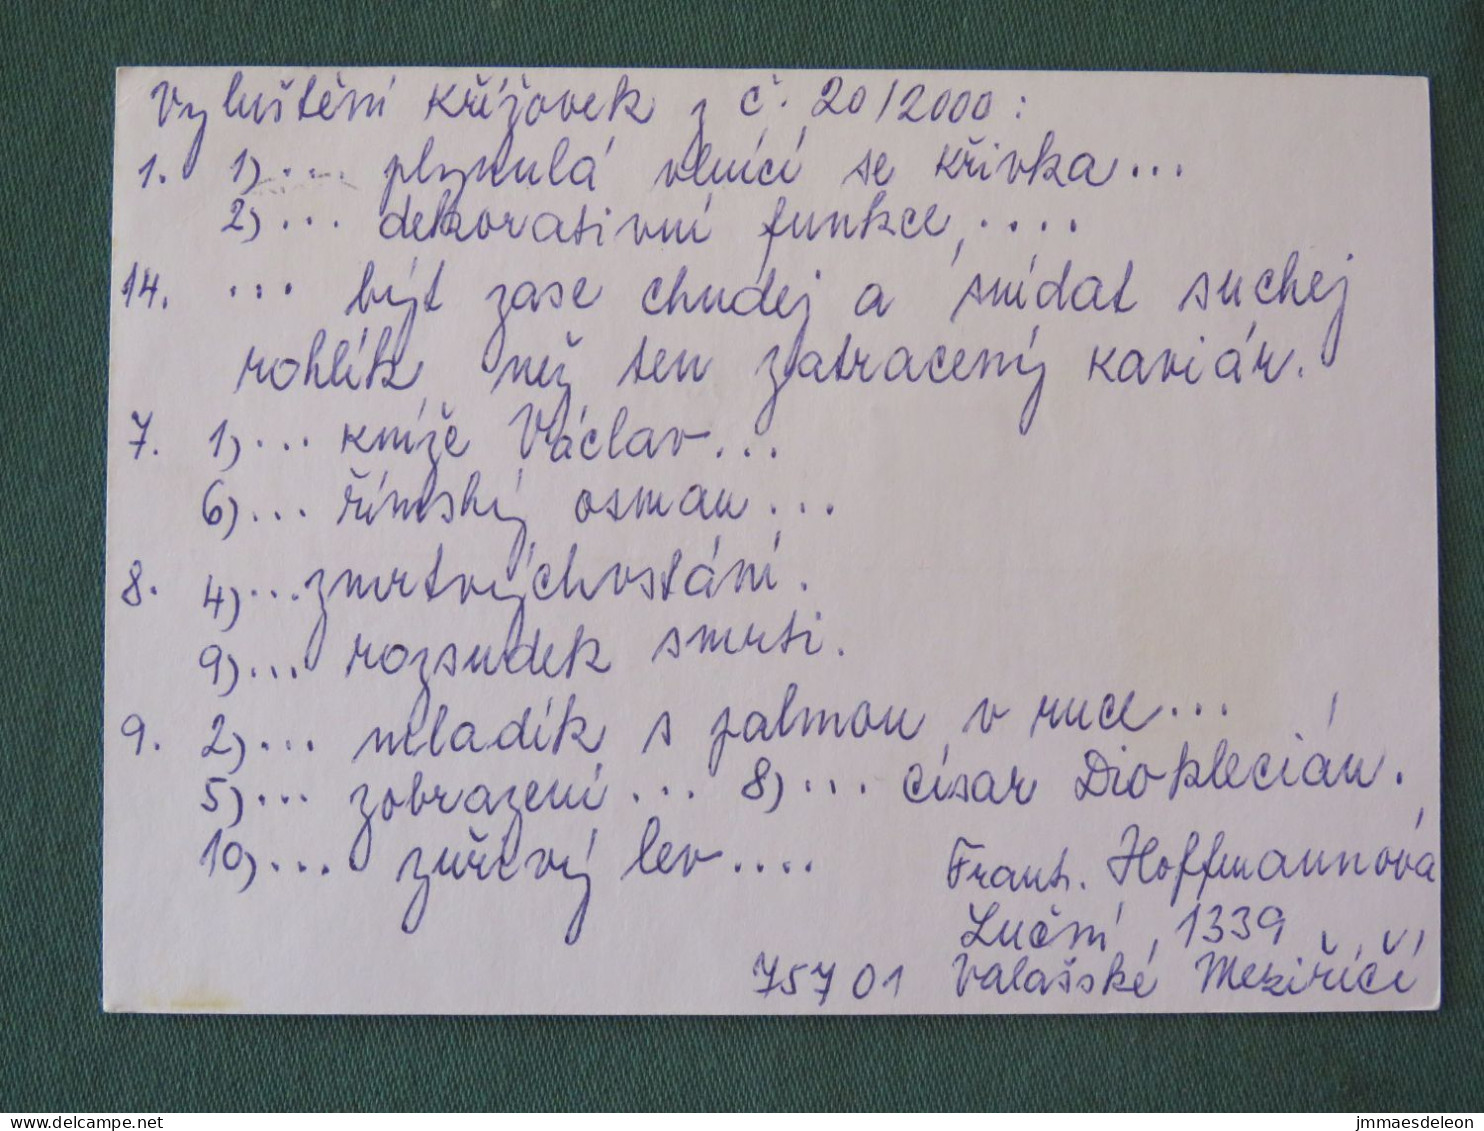 Vyluštění křížovek z č. 20/2000:
1. 1) ... plynulá vlnící se křivka...
2) ... dekorativní funkce, ....
14. ... být zase chudej a snídat suchej
rohlík, než ten zatracený kaviár.
7. 1) ... kníže Václav...
6) ... římský osman ...
8. 4) ... zmrtvýchvstání.
9) ... rozsudek smrti.
9. 2) ... mladík s palmou v ruce...
5) ... zobrazení ... 8) ... císař Dioklecián.
10) ... zuřivý lev ....
Frant. Hoffmannová
Luční 1339
757 01 Valašské Meziříčí
www.delcampe.net
jmmaesdeleon